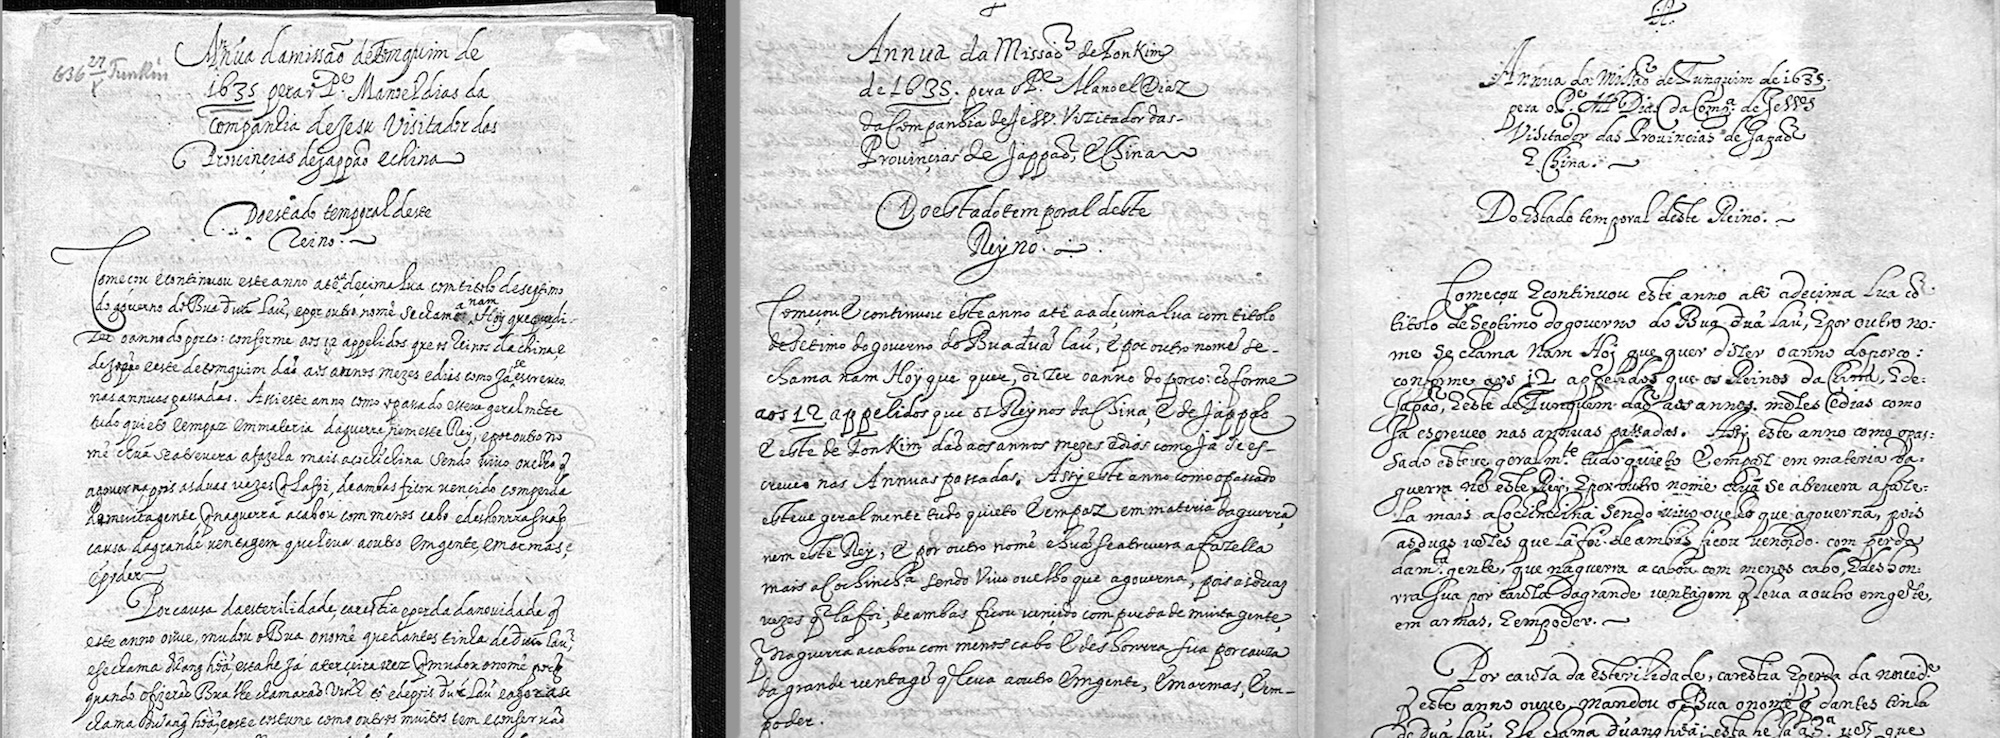 636 27 Tunkin
Annua da missão de tomquim de
1635 pera o P.e Manoel dias da
Companhia de Jesu Visitador das
Provinçias de Jappão e china
Do estado temporal deste
Reino.
Começou e continuou este anno até decima lua com titolo de septimo
do governo do Bua Đưã Laũ, e por outro nome se chama nam Hoÿ que quer di-
zer o anno do porco: conforme aos 12 appelidos que os Reinos da china e
de Japão e este de tomquim dão aos annos mezes e dias como Ja se escreveo
nas annuas passadas. Assi este anno como o passado esteve geralmẽte
tudo quieto e em paz em materia da guerra, nem este Rey, e por outro no
mẽ chuã se atrevera a fazela mais a cochichina sendo vivo o velho q̃
a governa, pois as duas vezes q̃ la foi, de ambas ficou vencido com perda
de muita gente q̃ na guerra acabou com menos cabo e deshonrra sua por
causa da grande ventagem que leva a outro em gente, em armas e
e poder
Por causa da esterilidade, carestia e perda da novidade q̃
este anno ouve, mudou o Bua o nomẽ que dantes tinha de Đưã Laũ,
e se chama dũang hõã, esta he Já a terçeira vez q̃ mudou o nomẽ porq̃
quando o fizerão Bua lhe chamarão Vinh tộ e depois Đưã Laũ e agora se
chama Dũang hõã, e este costume como outros muitos tem e conservão
Annua da Missaõ de TonKim
de 1635. pera o P.e Manoel Diaz
da Companhia de JESV. Vizitador das
Provinçias de Jappaõ, e China
Do estado temporal deste
Reyno.
Começou e continuou este anno atê a deçima lua com titolo
de setimo do governo do Bua đưã laũ, e por outro nome se
chama nam Hoy que quer, dizer o anno do porco: cõforme
aos 12 appelidos que os Reynos da China, e de Jappaõ
e este de TonKim daõ aos annos mezes e dias como Já se es-
creveo nas Annuas passadas. Assy este anno como o passado
esteve geralmente tudo quieto e em paz em materia da guerra,
nem este Rey, e por outro nomẽ chuã se atrevera a fazella
mais a Cochinchã sendo vivo o velho que a governa, pois as duas
vezes q̃ la foi, de ambas ficou vençido com perda de muita gente,
q̃ na guerra acabou com menos cabo e deshonrra sua por cauza
da grande ventagẽ q̃ leva a outro em gente, em armas, e em
poder.
Annua da Missão de Tunquim de 1635.
pera o P.e M.el Diaz da Comp.a de Jesus
Visitador das Provincias de Japaõ
e China.
Do Estado temporal deste Reino.
Começou e continuou este anno até a decima lua cõ
titolo de Septimo do governo do Bua đưã laũ, e por outro no-
me se chama Nam Hoj que quer dizer o anno do porco:
conforme aos 12 appelidos que os Reinos da China, e de
Japaõ, e este de Tunquim daõ aos annos. mezes e dias como
Ja escreveo nas annuas passadas. Assy este anno como o pas-
sado esteve geralm.te tudo quieto e em paz em materia da
guerra nẽ este Rey, e por outro nome chuã se atrevera a faze-
la mais a Cochinchina sendo vivo o velho que a governa, pois
as duas vezes que la foi. de ambas ficou vencido. com perda
da m.ta gente, que na guerra acabou com menos cabo, e deshon-
rra sua por causa da grande ventagem q̃ leva a outro em gẽte,
em armas, e em poder.
Por causa da esterilidade, carestia e perda da novid.e
q̃ este anno ouve, mandou o Bua o nome q̃ dantes tinha
de đưã laũ, e se chama đưanghõã; esta he Ja a 3.a vez que